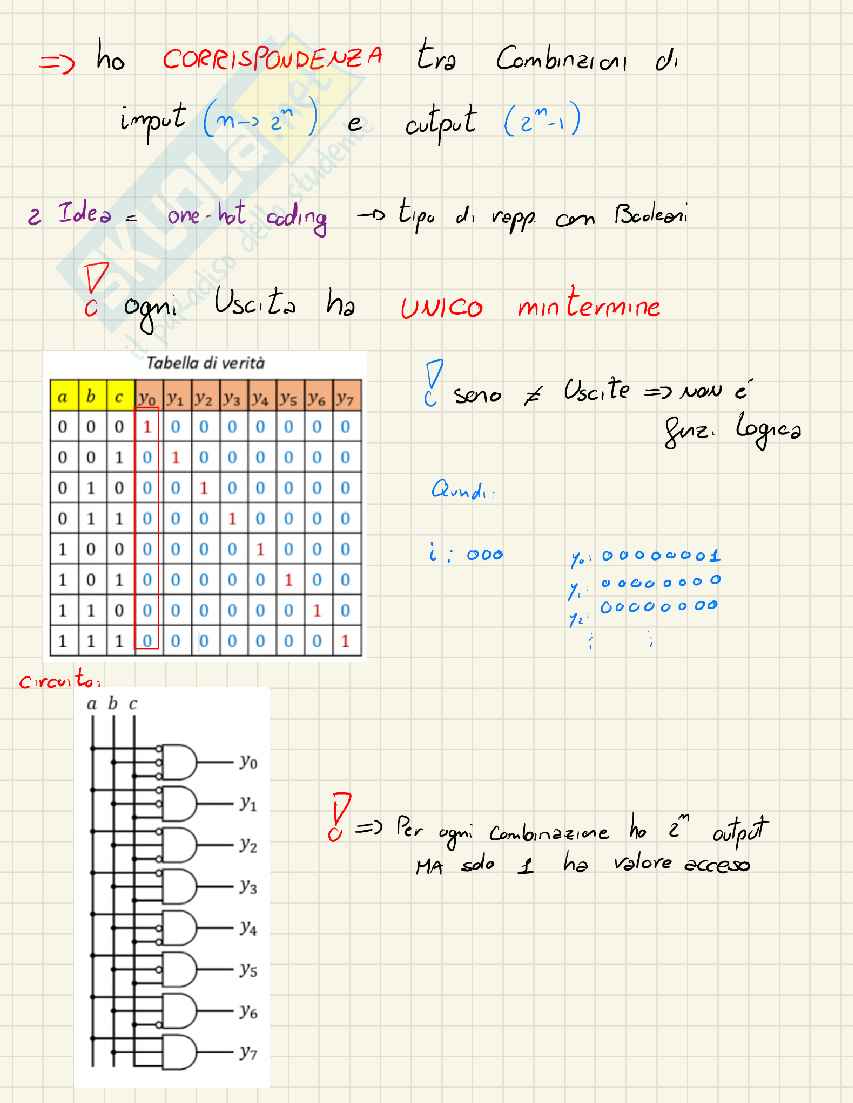 => ho CORRISPONDENZA tra Combinazioni di
input (n -> 2^n) e output (2^n-1)
2 Idea = one-hot coding -> tipo di rapp con Booleani
! ogni Uscita ha UNICO mintermine
Tabella di verità
a b c y0 y1 y2 y3 y4 y5 y6 y7
0 0 0 1 0 0 0 0 0 0 0
0 0 1 0 1 0 0 0 0 0 0
0 1 0 0 0 1 0 0 0 0 0
0 1 1 0 0 0 1 0 0 0 0
1 0 0 0 0 0 0 1 0 0 0
1 0 1 0 0 0 0 0 1 0 0
1 1 0 0 0 0 0 0 0 1 0
1 1 1 0 0 0 0 0 0 0 1
! sono ≠ Uscite => NON è
funz. logica
Quindi:
i : 000
y0: 00000001
y1: 00000000
y2: 00000000
: :
circuito:
a b c
y0
y1
y2
y3
y4
y5
y6
y7
! => Per ogni combinazione ho 2^n output
MA solo 1 ha valore acceso
SKUOLA.net
il paradiso dello studente